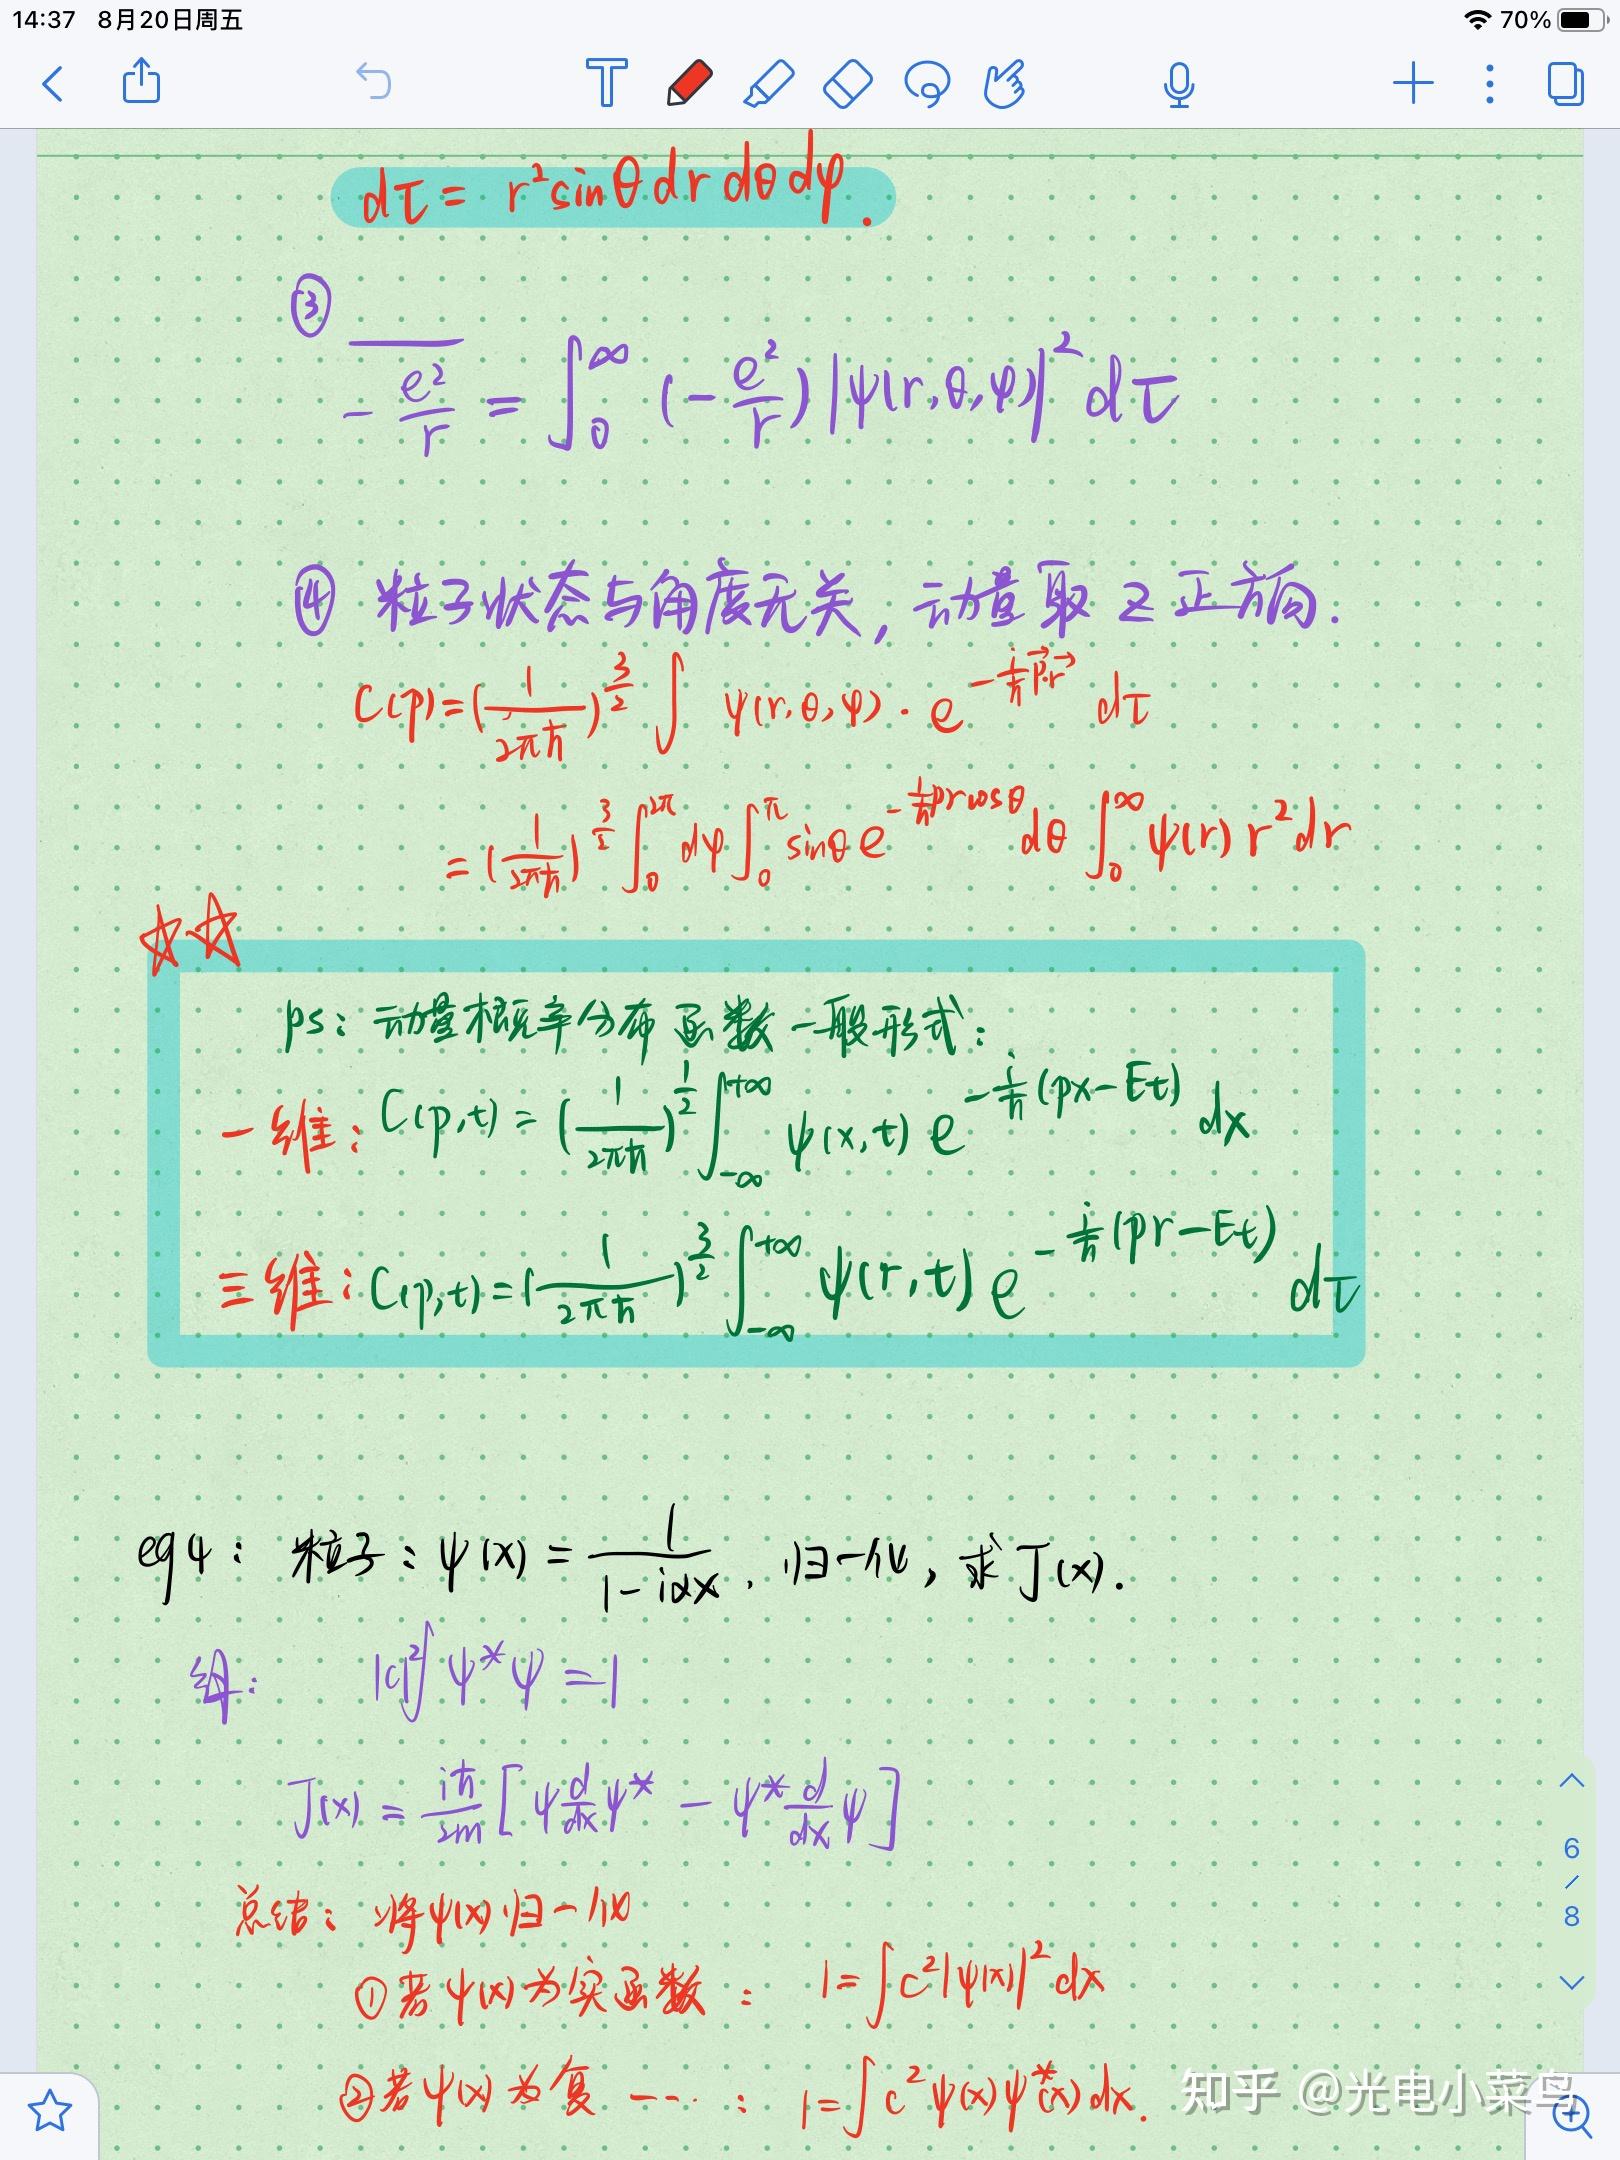 14:37 8月20日周五
70%
dτ = r²sinθ dr dθ dφ.
③
‾(-e²/r) = ∫₀^∞ (-e²/r) |ψ(r,θ,φ)|² dτ
④ 粒子状态与角度无关, 动量取 z 正方向.
C(p) = (1/2πħ)^(3/2) ∫ ψ(r,θ,φ) · e^(-i/ħ p⃗·r⃗) dτ
= (1/2πħ)^(3/2) ∫₀^2π dφ ∫₀^π sinθ e^(-i/ħ pr cosθ) dθ ∫₀^∞ ψ(r) r² dr
ps: 动量概率分布函数一般形式:
一维: C(p,t) = (1/2πħ)^(1/2) ∫_-∞^+∞ ψ(x,t) e^(-i/ħ(px-Et)) dx
三维: C(p,t) = (1/2πħ)^(3/2) ∫_-∞^+∞ ψ(r,t) e^(-i/ħ(pr-Et)) dτ
eg4: 粒子: ψ(x) = 1/(1-iαx), 归一化, 求J(x).
|c|² ∫ ψ*ψ = 1
J(x) = iħ/2m [ψ d/dx ψ* - ψ* d/dx ψ]
总结: 将ψ(x)归一化
①若ψ(x)为实函数: 1=∫c²|ψ(x)|²dx
②若ψ(x)为复----: 1=∫c²ψ(x)ψ*(x)dx.
6
/
8
知乎 @光电小菜鸟